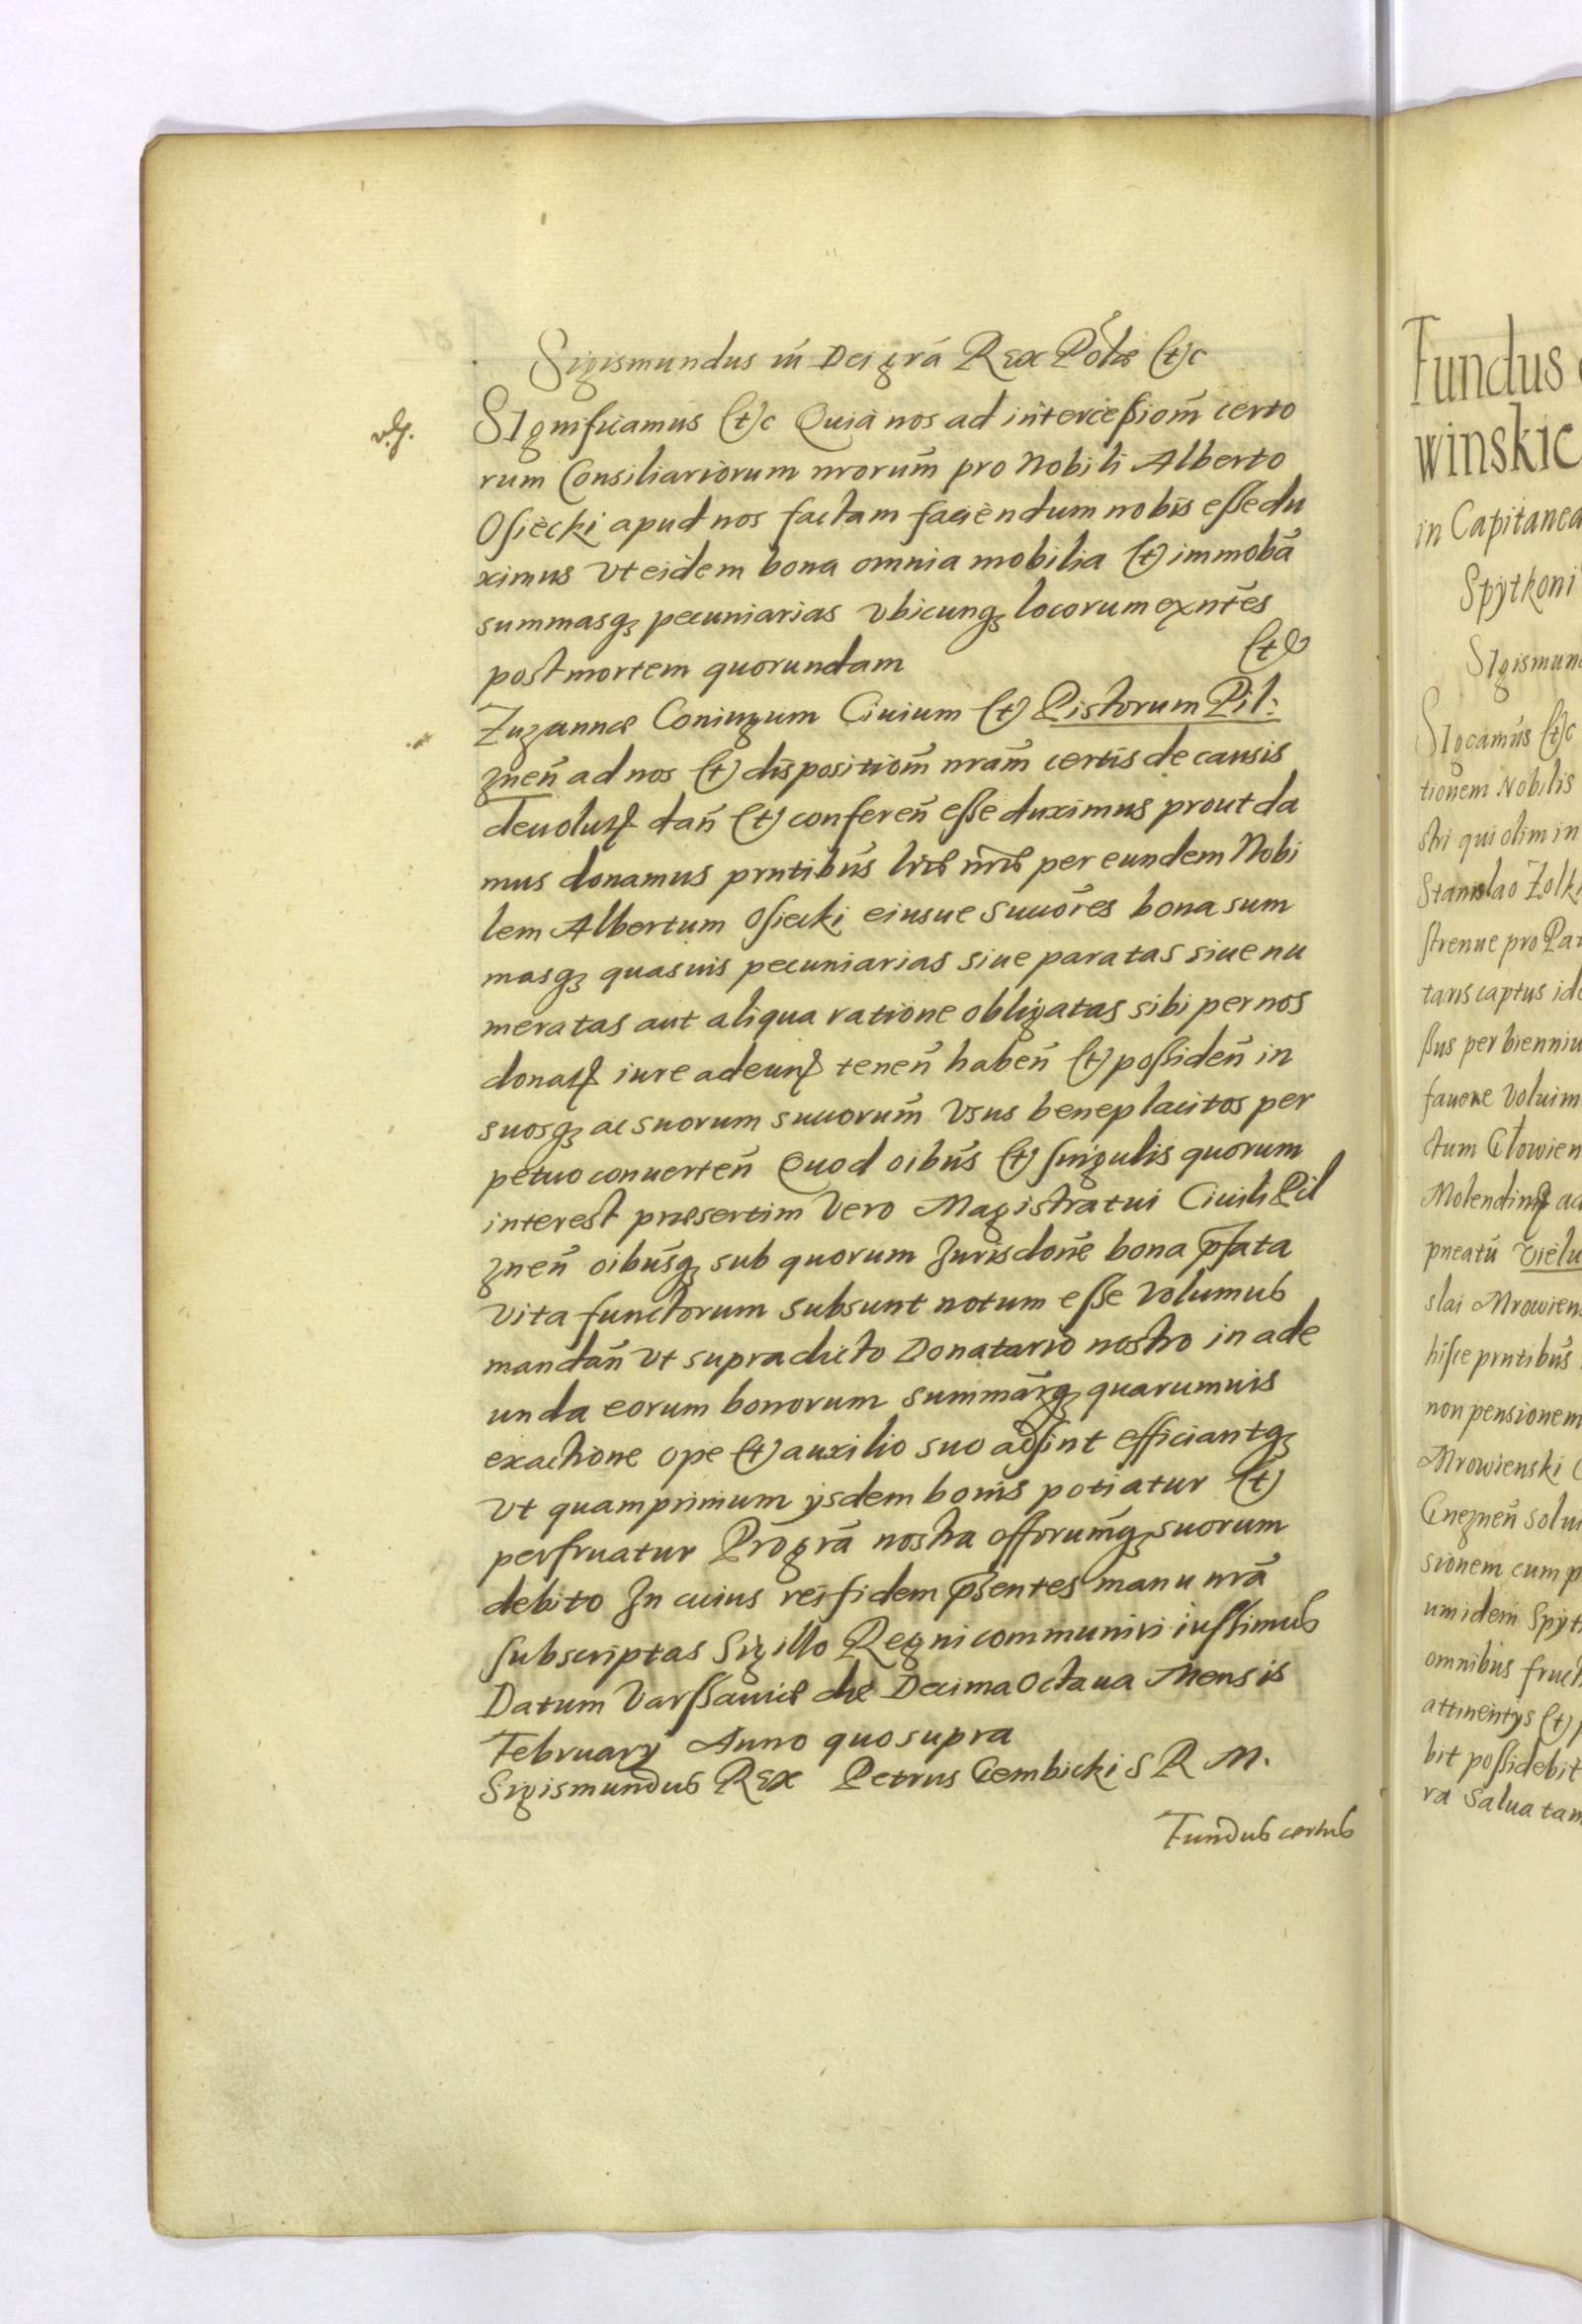 Sigismundus III Dei grã Rex Polõiæ &c
SIgnificamus &c Quia nos ad intercessiom̃ certo
rum Consiliariorum nrorum̃ pro Nobili Alberto
Osiecki apud nos factam faciendum nobis esse du
ximus vt eidem bona omnia mobilia & immobã
summasq3 pecuniarias vbicunq3 locorum exñtes
post mortem quorundam &
Zuzannæ Coniugum Ciuium & Pistorum Pil:
znen̄ ad nos & dispositiom̃ nram̃ certis de causis
deuolut dan̄ & conferen̄ esse duximus prout da
mus donamus prntibũs lris nris per eundem Nobi
lem Albertum Osiecki eiusue succõres bona sum
masq3 quasuis pecuniarias siue paratas siue nu
meratas aut aliqua ratione obligatas sibi per nos
donat iure adeun tenen̄ haben̄ & possiden̄ in
suosq3 ac suorum succorum̃ vsus beneplacitos per
petuo conuerten̄ Quod oibũs & singulis quorum
interest præsertim vero Magistratui Ciuili Pil
znen̄ oibũsq3 sub quorum Jurisdonẽ bona pfata
vita functorum subsunt notum esse volumus
mandan̄ vt supradicto Donatario nostro in ade
unda eorum bonorum summarq3 quarumuis
exactione ope & auxilio suo adsint efficiantq3
vt quamprimum ijsdem bonis potiatur &
perfruatur Pro grã nostra offorum̃q3 suorum
debito In cuius rei fidem psentes manu nrã
subscriptas Sigillo Regni communiri iussimus
Datum Varssauiæ die Decima Octaua Mensis
February Anno quo supra
Sigismundus Rex Petrus Gembicki S R M.
Fundus certus
Fundus
winskie
in Capitanea
Spytkoni
SIgismun
SIgcamus &c
tionem Nobilis
stri qui olim in
Stanislao Zolk
strenue pro Pa
taris captus id
ssus per bienniu
fauore voluim
ctum Glowien
Molendin ac
pneatũ Vielu
slai Mrowien
hisce prntibũs
non pensionem
Mrowienski
Gneznen̄ solu
sionem cum p
um idem Spyt
omnibus fruct
attinentijs &
bit possidebit
ra Salua tam